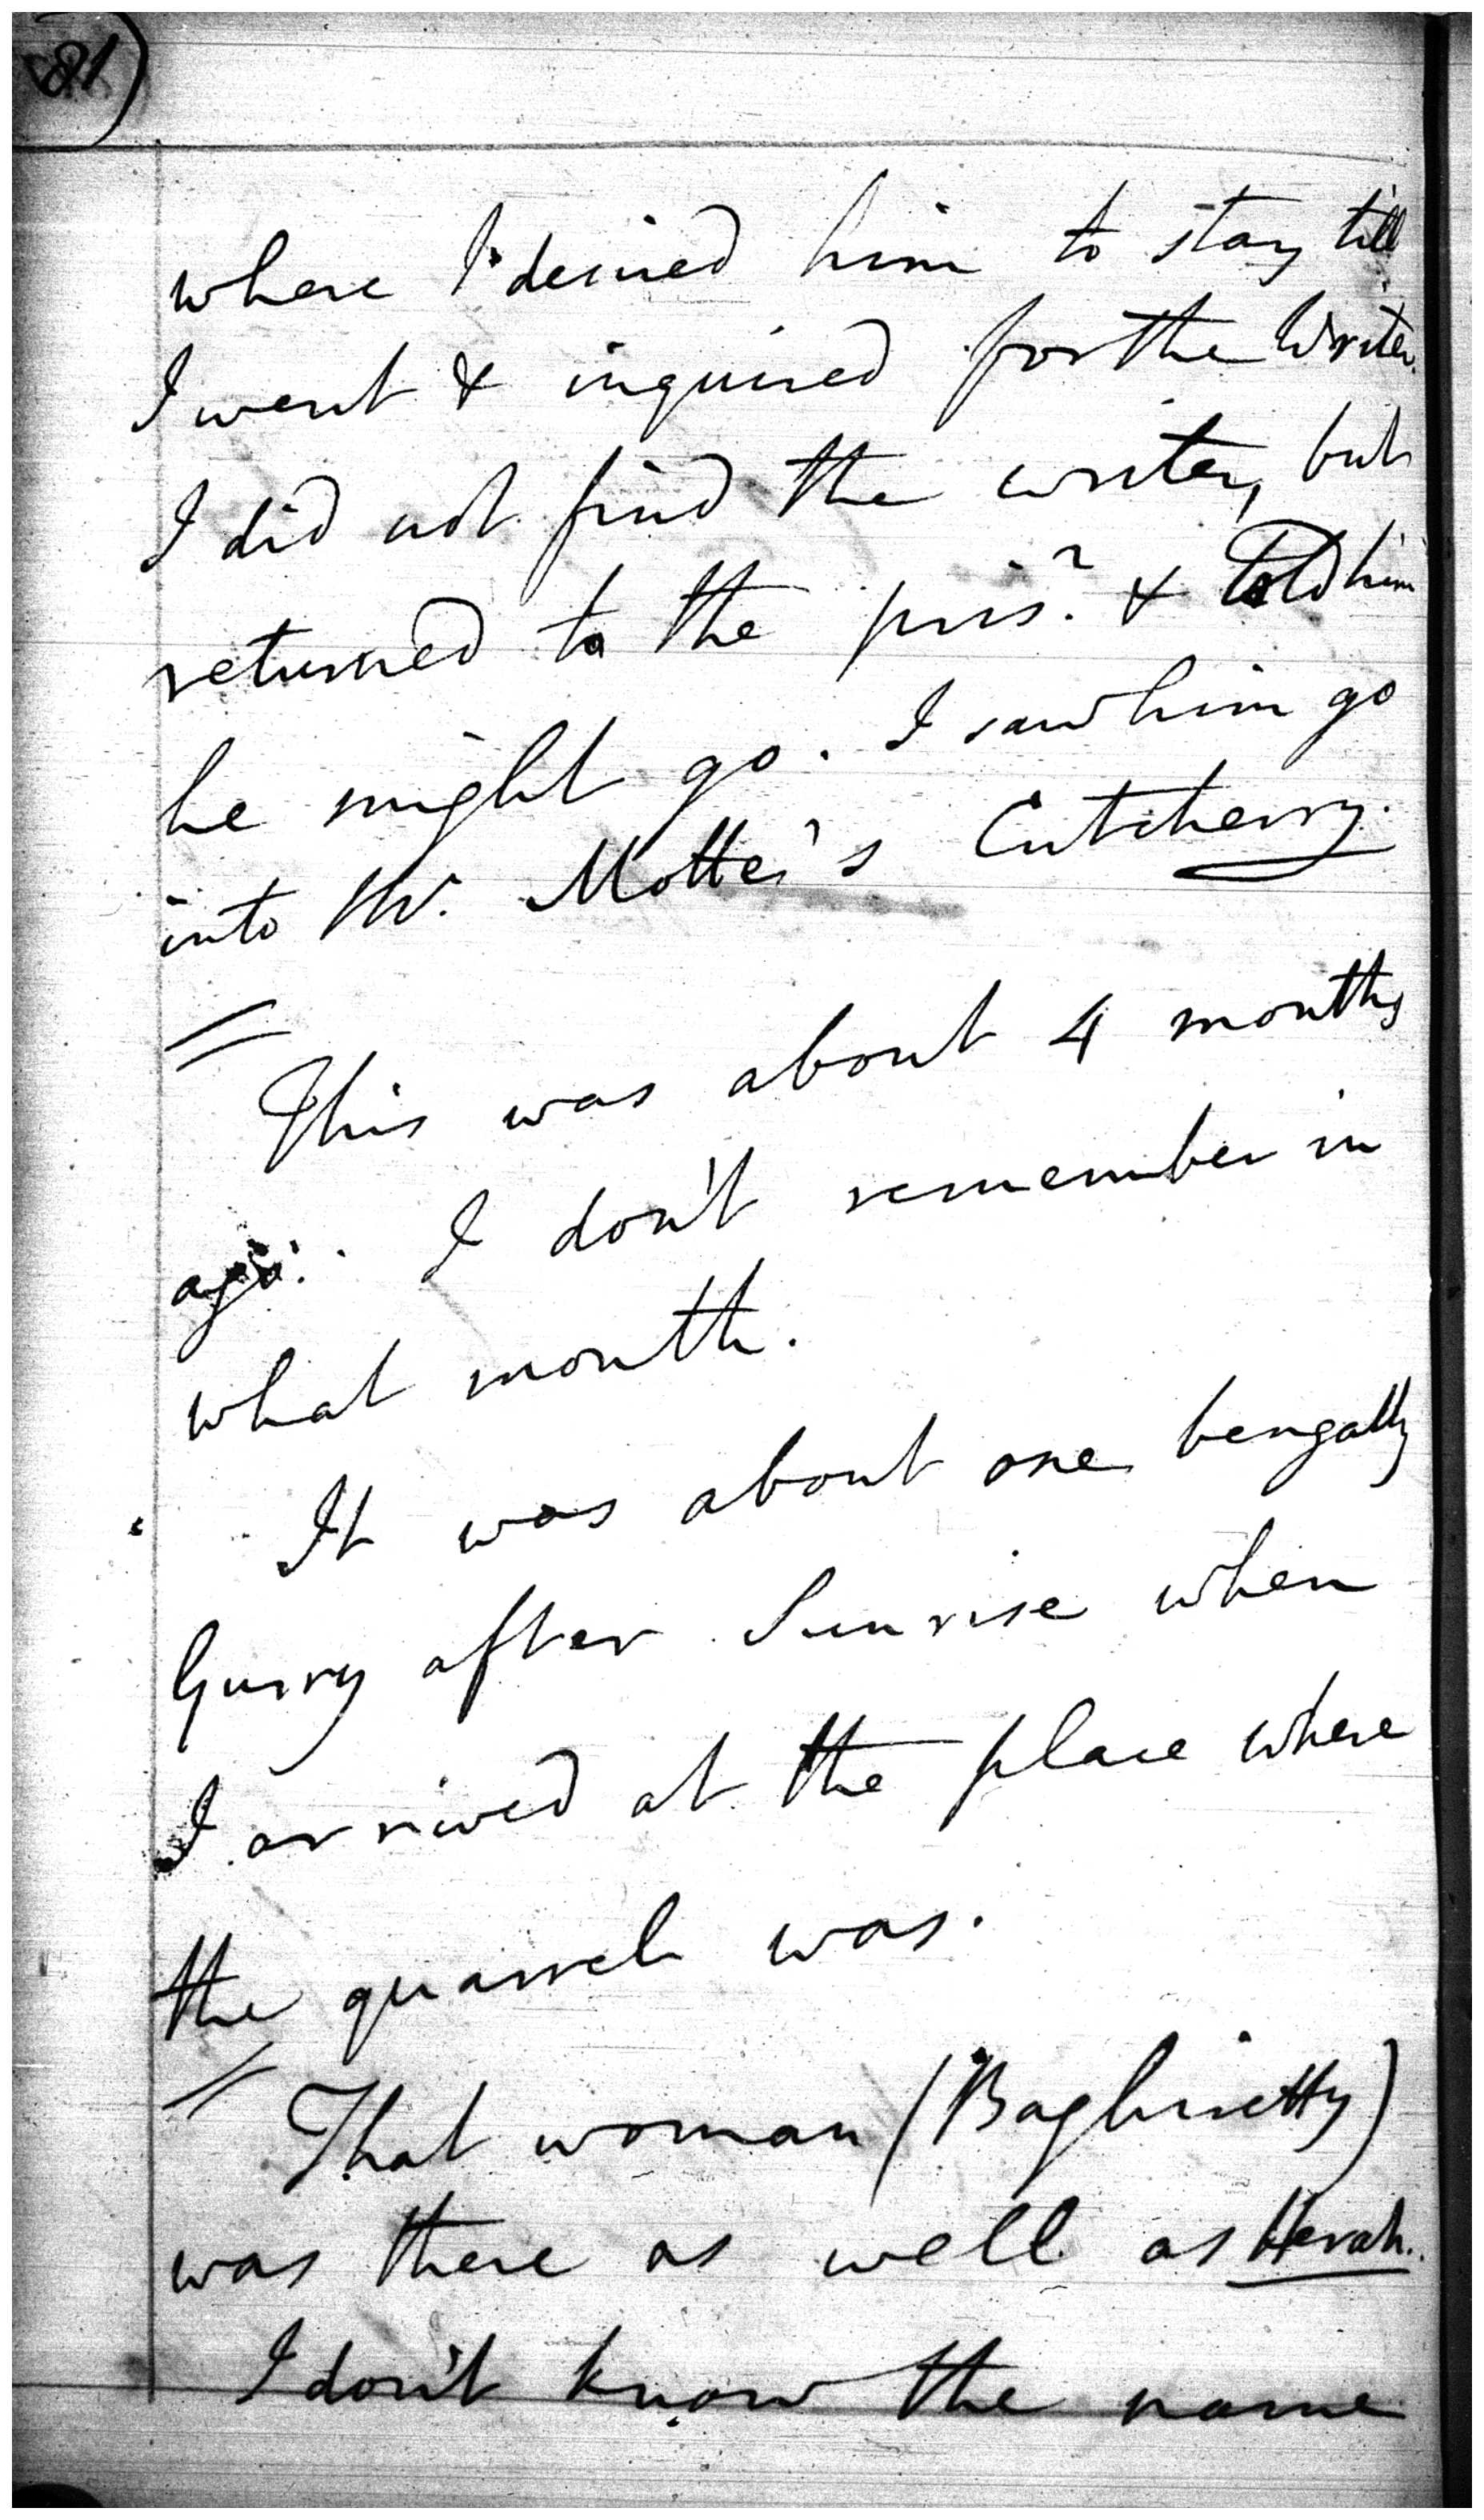 81)
where I desired him to stay till
I went & inquired for the Writer.
I did not find the writer, but
returned to the pris.r & told him
he might go. I saw him go
into Mr. Motte's Cutcherry.
= This was about 4 months
ago. I don't remember in
what month.
It was about one bengally
Gurry after Sunrise when
I arrived at the place where
the quarrel was.
= That woman (Baglinetty)
was there as well as Herah.
I don't know the name